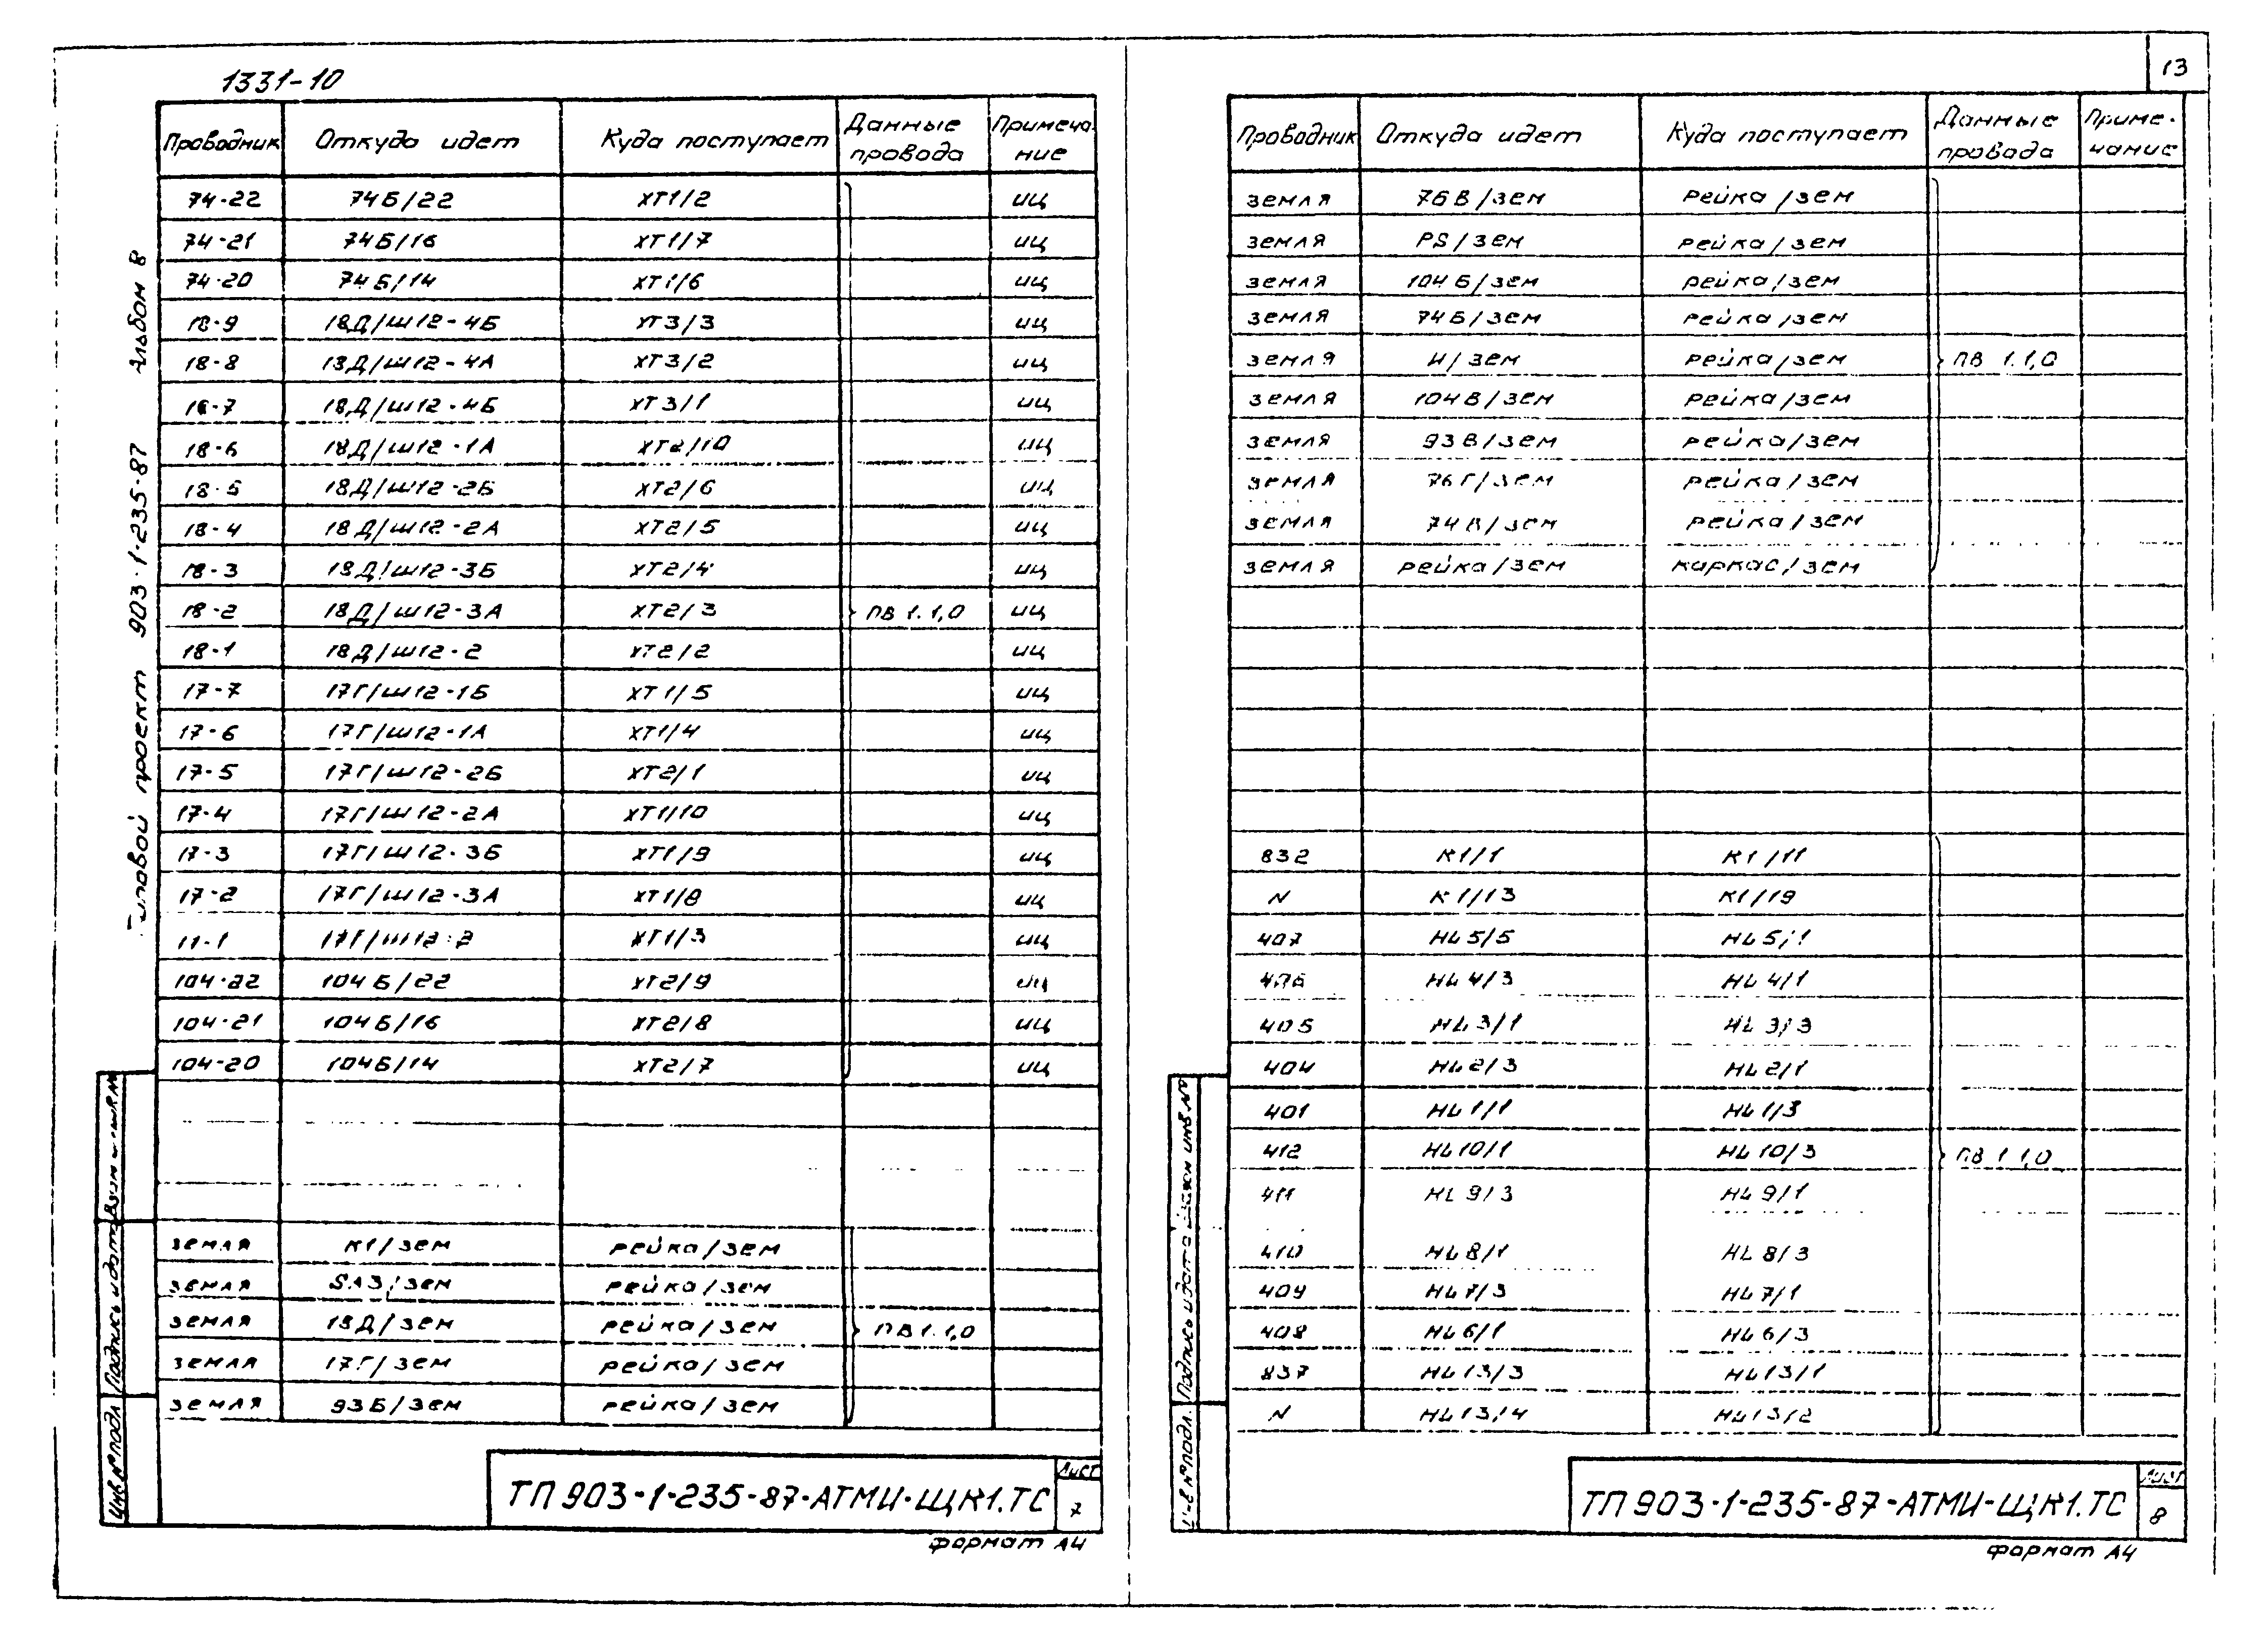 13
1331-10
Проводник Откуда идет Куда поступает Данные провода Примеча- ние
74-22 74Б/22 ХТ1/2 ИЦ
74-21 74Б/16 ХТ1/7 ИЦ
74-20 74Б/14 ХТ1/6 ИЦ
18-9 18Д/Ш12-4Б ХТ3/3 ИЦ
18-8 18Д/Ш12-4А ХТ3/2 ИЦ
18-7 18Д/Ш12-4Б ХТ3/1 ИЦ
18-6 18Д/Ш12-1А ХТ2/10 ИЦ
18-5 18Д/Ш12-2Б ХТ2/6 ИЦ
18-4 18Д/Ш12-2А ХТ2/5 ИЦ
18-3 18Д/Ш12-3Б ХТ2/4 ИЦ
18-2 18Д/Ш12-3А ХТ2/3 ПВ 1.1,0 ИЦ
18-1 18Д/Ш12-2 ХТ2/2 ИЦ
17-7 17Г/Ш12-1Б ХТ1/5 ИЦ
17-6 17Г/Ш12-1А ХТ1/4 ИЦ
17-5 17Г/Ш12-2Б ХТ2/1 ИЦ
17-4 17Г/Ш12-2А ХТ1/10 ИЦ
17-3 17Г/Ш12-3Б ХТ1/9 ИЦ
17-2 17Г/Ш12-3А ХТ1/8 ИЦ
17-1 17Г/Ш12-2 ХТ1/3 ИЦ
104-22 104Б/22 ХТ2/9 ИЦ
104-21 104Б/16 ХТ2/8 ИЦ
104-20 104Б/14 ХТ2/7 ИЦ
земля К1/зем рейка/зем
земля SA3/зем рейка/зем
земля 18Д/зем рейка/зем ПВ 1.1,0
земля 17Г/зем рейка/зем
земля 93Б/зем рейка/зем
ТП 903-1-235-87-АТМИ-ЩК1.ТС
Лист
7
формат А4
Типовой проект 903-1-235-87 Альбом 8
Взам инв №
Подпись и дата
Инв № подл
Проводник Откуда идет Куда поступает Данные провода Приме- чание
земля 76В/зем рейка/зем
земля PS/зем рейка/зем
земля 104Б/зем рейка/зем
земля 74Б/зем рейка/зем
земля И/зем рейка/зем ПВ 1.1,0
земля 104В/зем рейка/зем
земля 93В/зем рейка/зем
земля 76Г/зем рейка/зем
земля 74В/зем рейка/зем
земля рейка/зем каркас/зем
832 К1/1 К1/11
N К1/13 К1/19
407 HL5/5 HL5/1
406 HL4/3 HL4/1
405 HL3/1 HL3/3
404 HL2/3 HL2/1
401 HL1/1 HL1/3
412 HL10/1 HL10/3 ПВ 1 1,0
411 HL9/3 HL9/1
410 HL8/1 HL8/3
409 HL7/3 HL7/1
408 HL6/1 HL6/3
837 HL13/3 HL13/1
N HL13/4 HL13/2
ТП 903-1-235-87-АТМИ-ЩК1.ТС
Лист
8
формат А4
Взам инв №
Подпись и дата
№ подл.